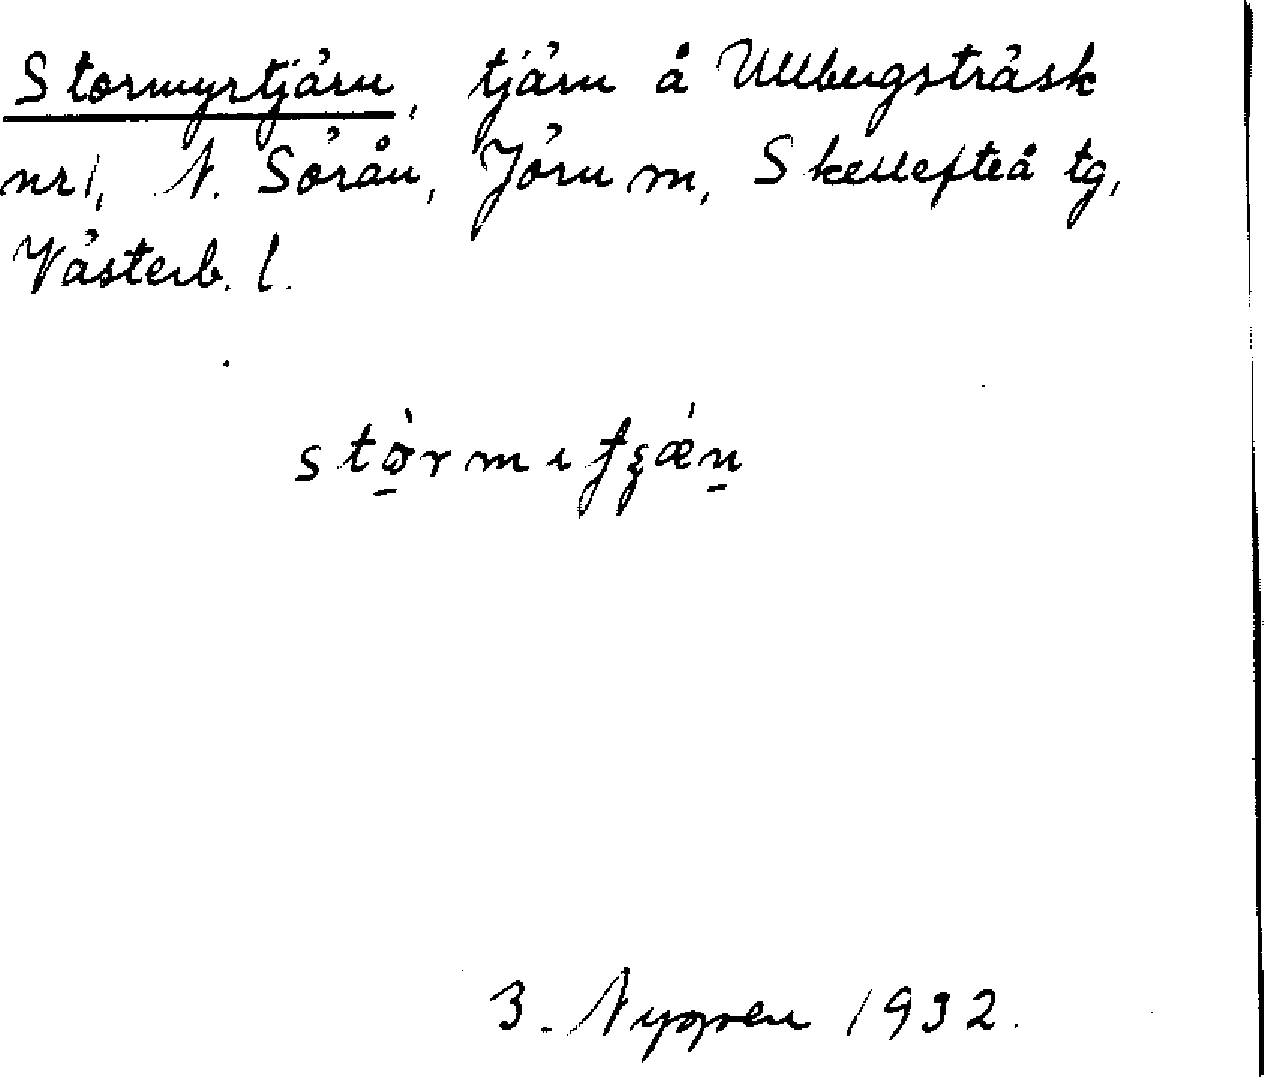 Stormyrtjärn, tjärn å Ullbergsträsk
nr 1, N. Sörån, Jörn sn, Skellefteå tg,
Västerb. l.
3. Nygren 1932.